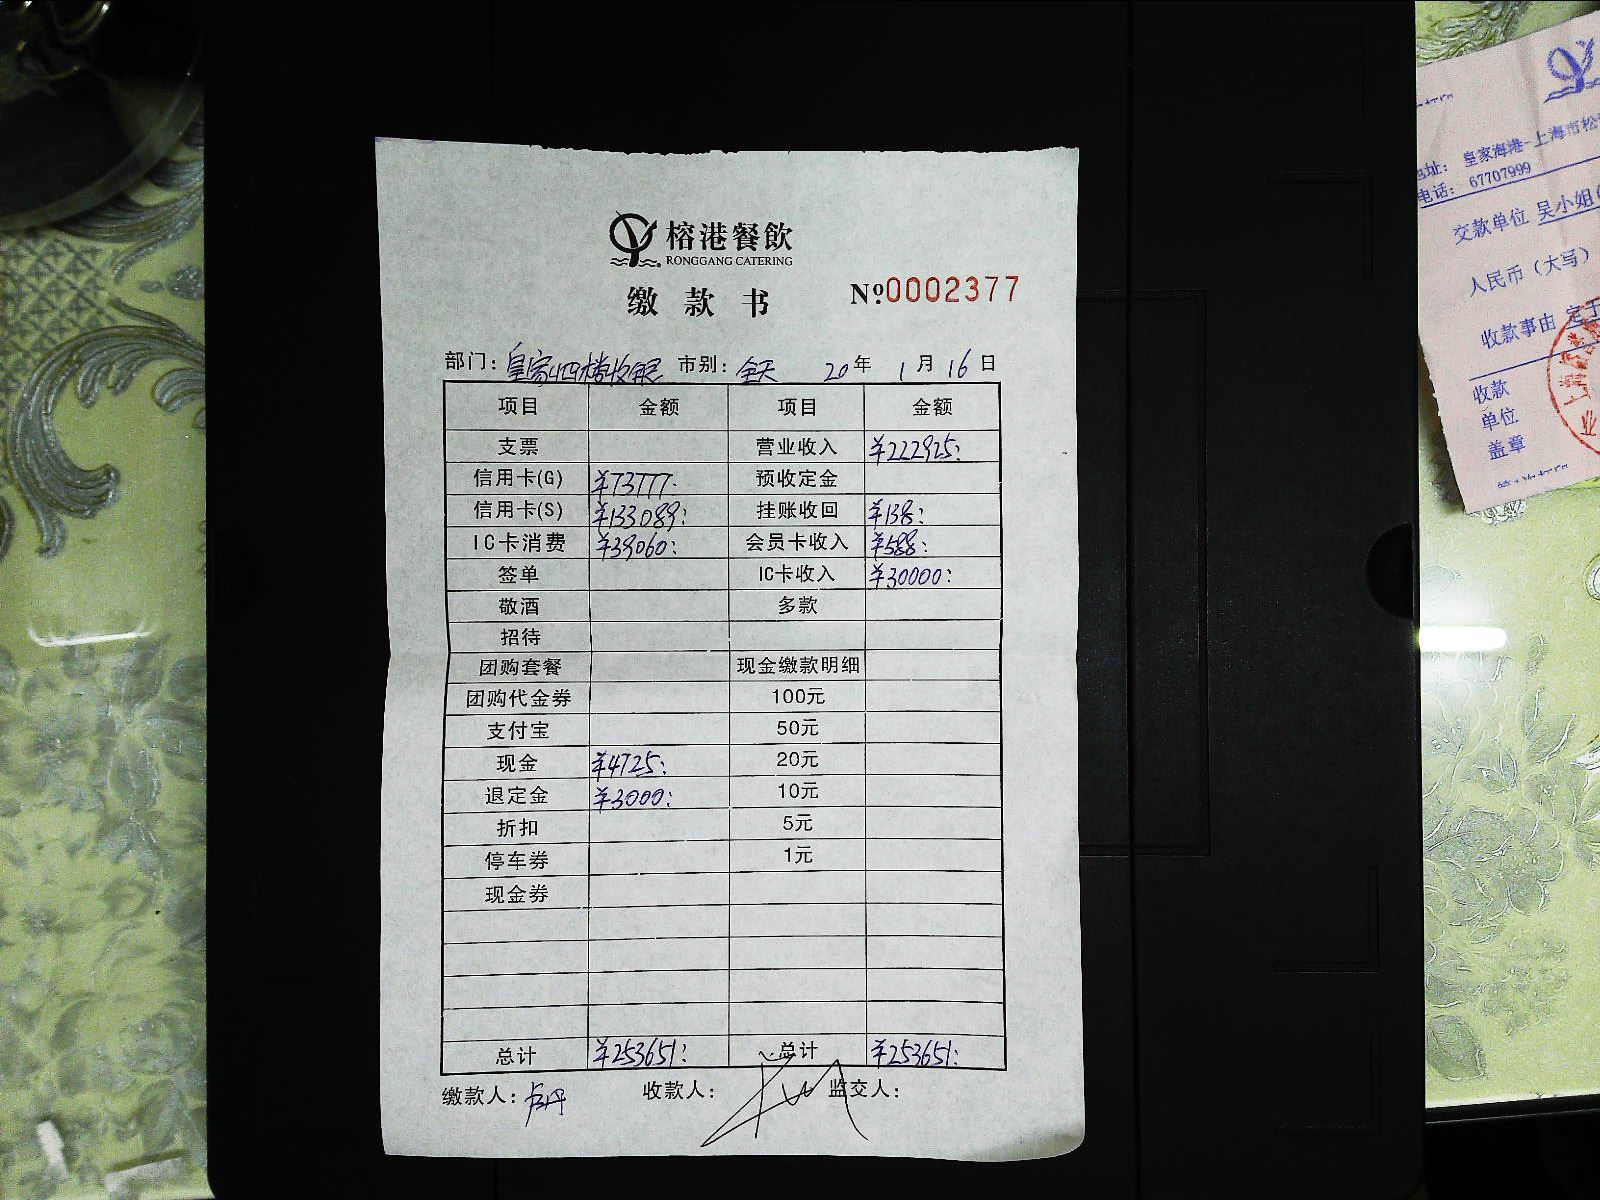 榕港餐飲
RONGGANG CATERING
缴款书 Nº0002377
部门: 皇家四楼收银 市别: 全天 20年 1月16日
项目 金额 项目 金额
支票 营业收入 ¥222925:
信用卡(G) ¥73777. 预收定金
信用卡(S) ¥133089: 挂账收回 ¥138:
IC卡消费 ¥39060: 会员卡收入 ¥588:
签单 IC卡收入 ¥30000:
敬酒 多款
招待
团购套餐 现金缴款明细
团购代金券 100元
支付宝 50元
现金 ¥4725: 20元
退定金 ¥3000: 10元
折扣 5元
停车券 1元
现金券
总计 ¥253651: 总计 ¥253651:
缴款人: 卢丹 收款人: 监交人:
地址: 皇家海港-上海市松
电话: 67707999
交款单位 吴小姐(
人民币(大写)
收款事由 定于
收款
单位
盖章